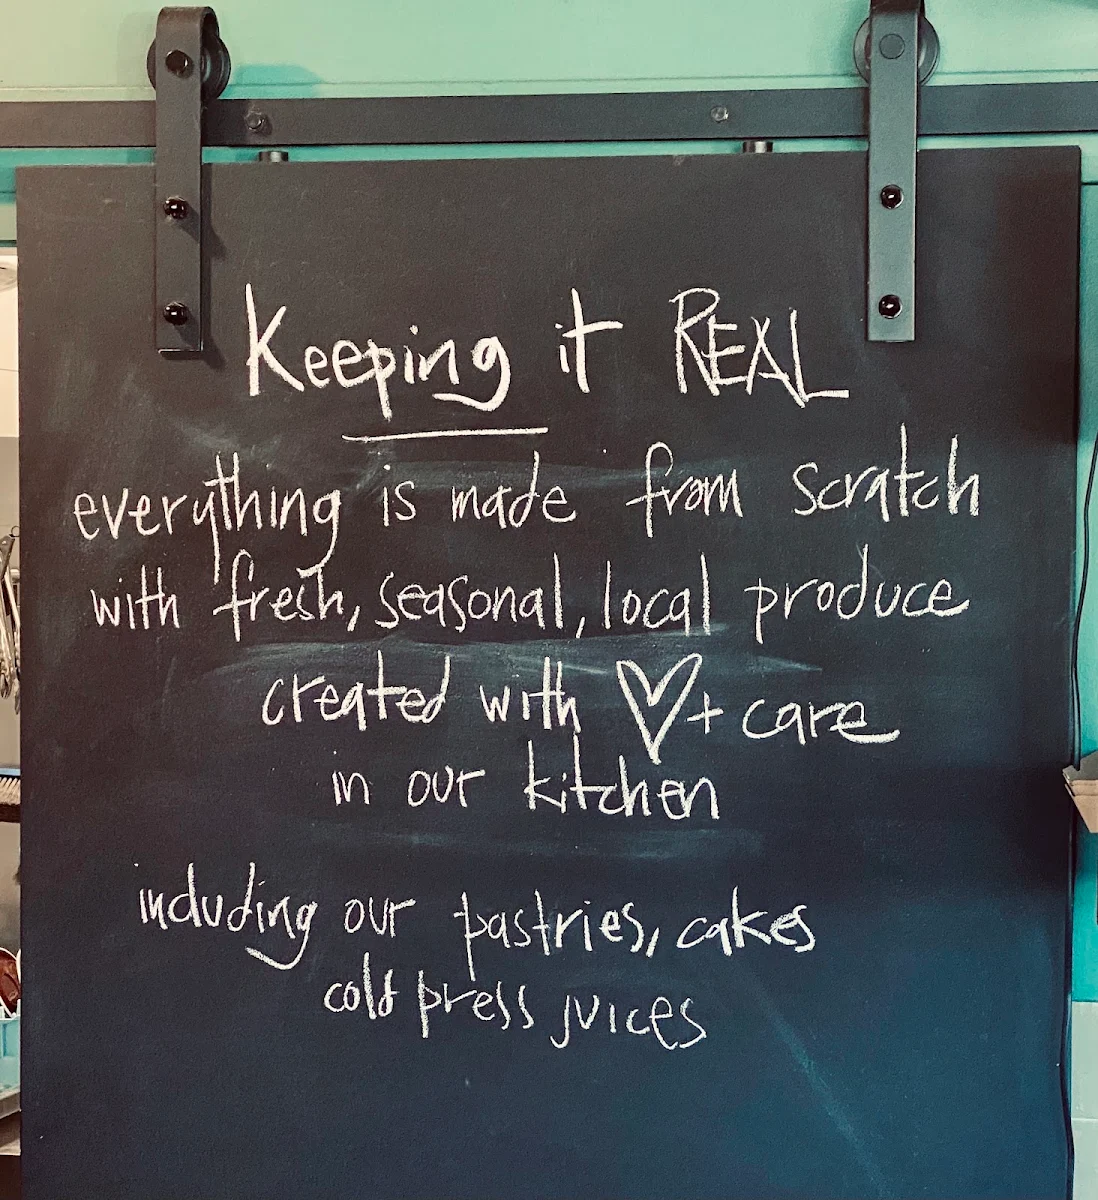 Keeping it REAL
everything is made from scratch
with fresh, seasonal, local produce
created with ♡ + care
in our kitchen
including our pastries, cakes
cold press juices